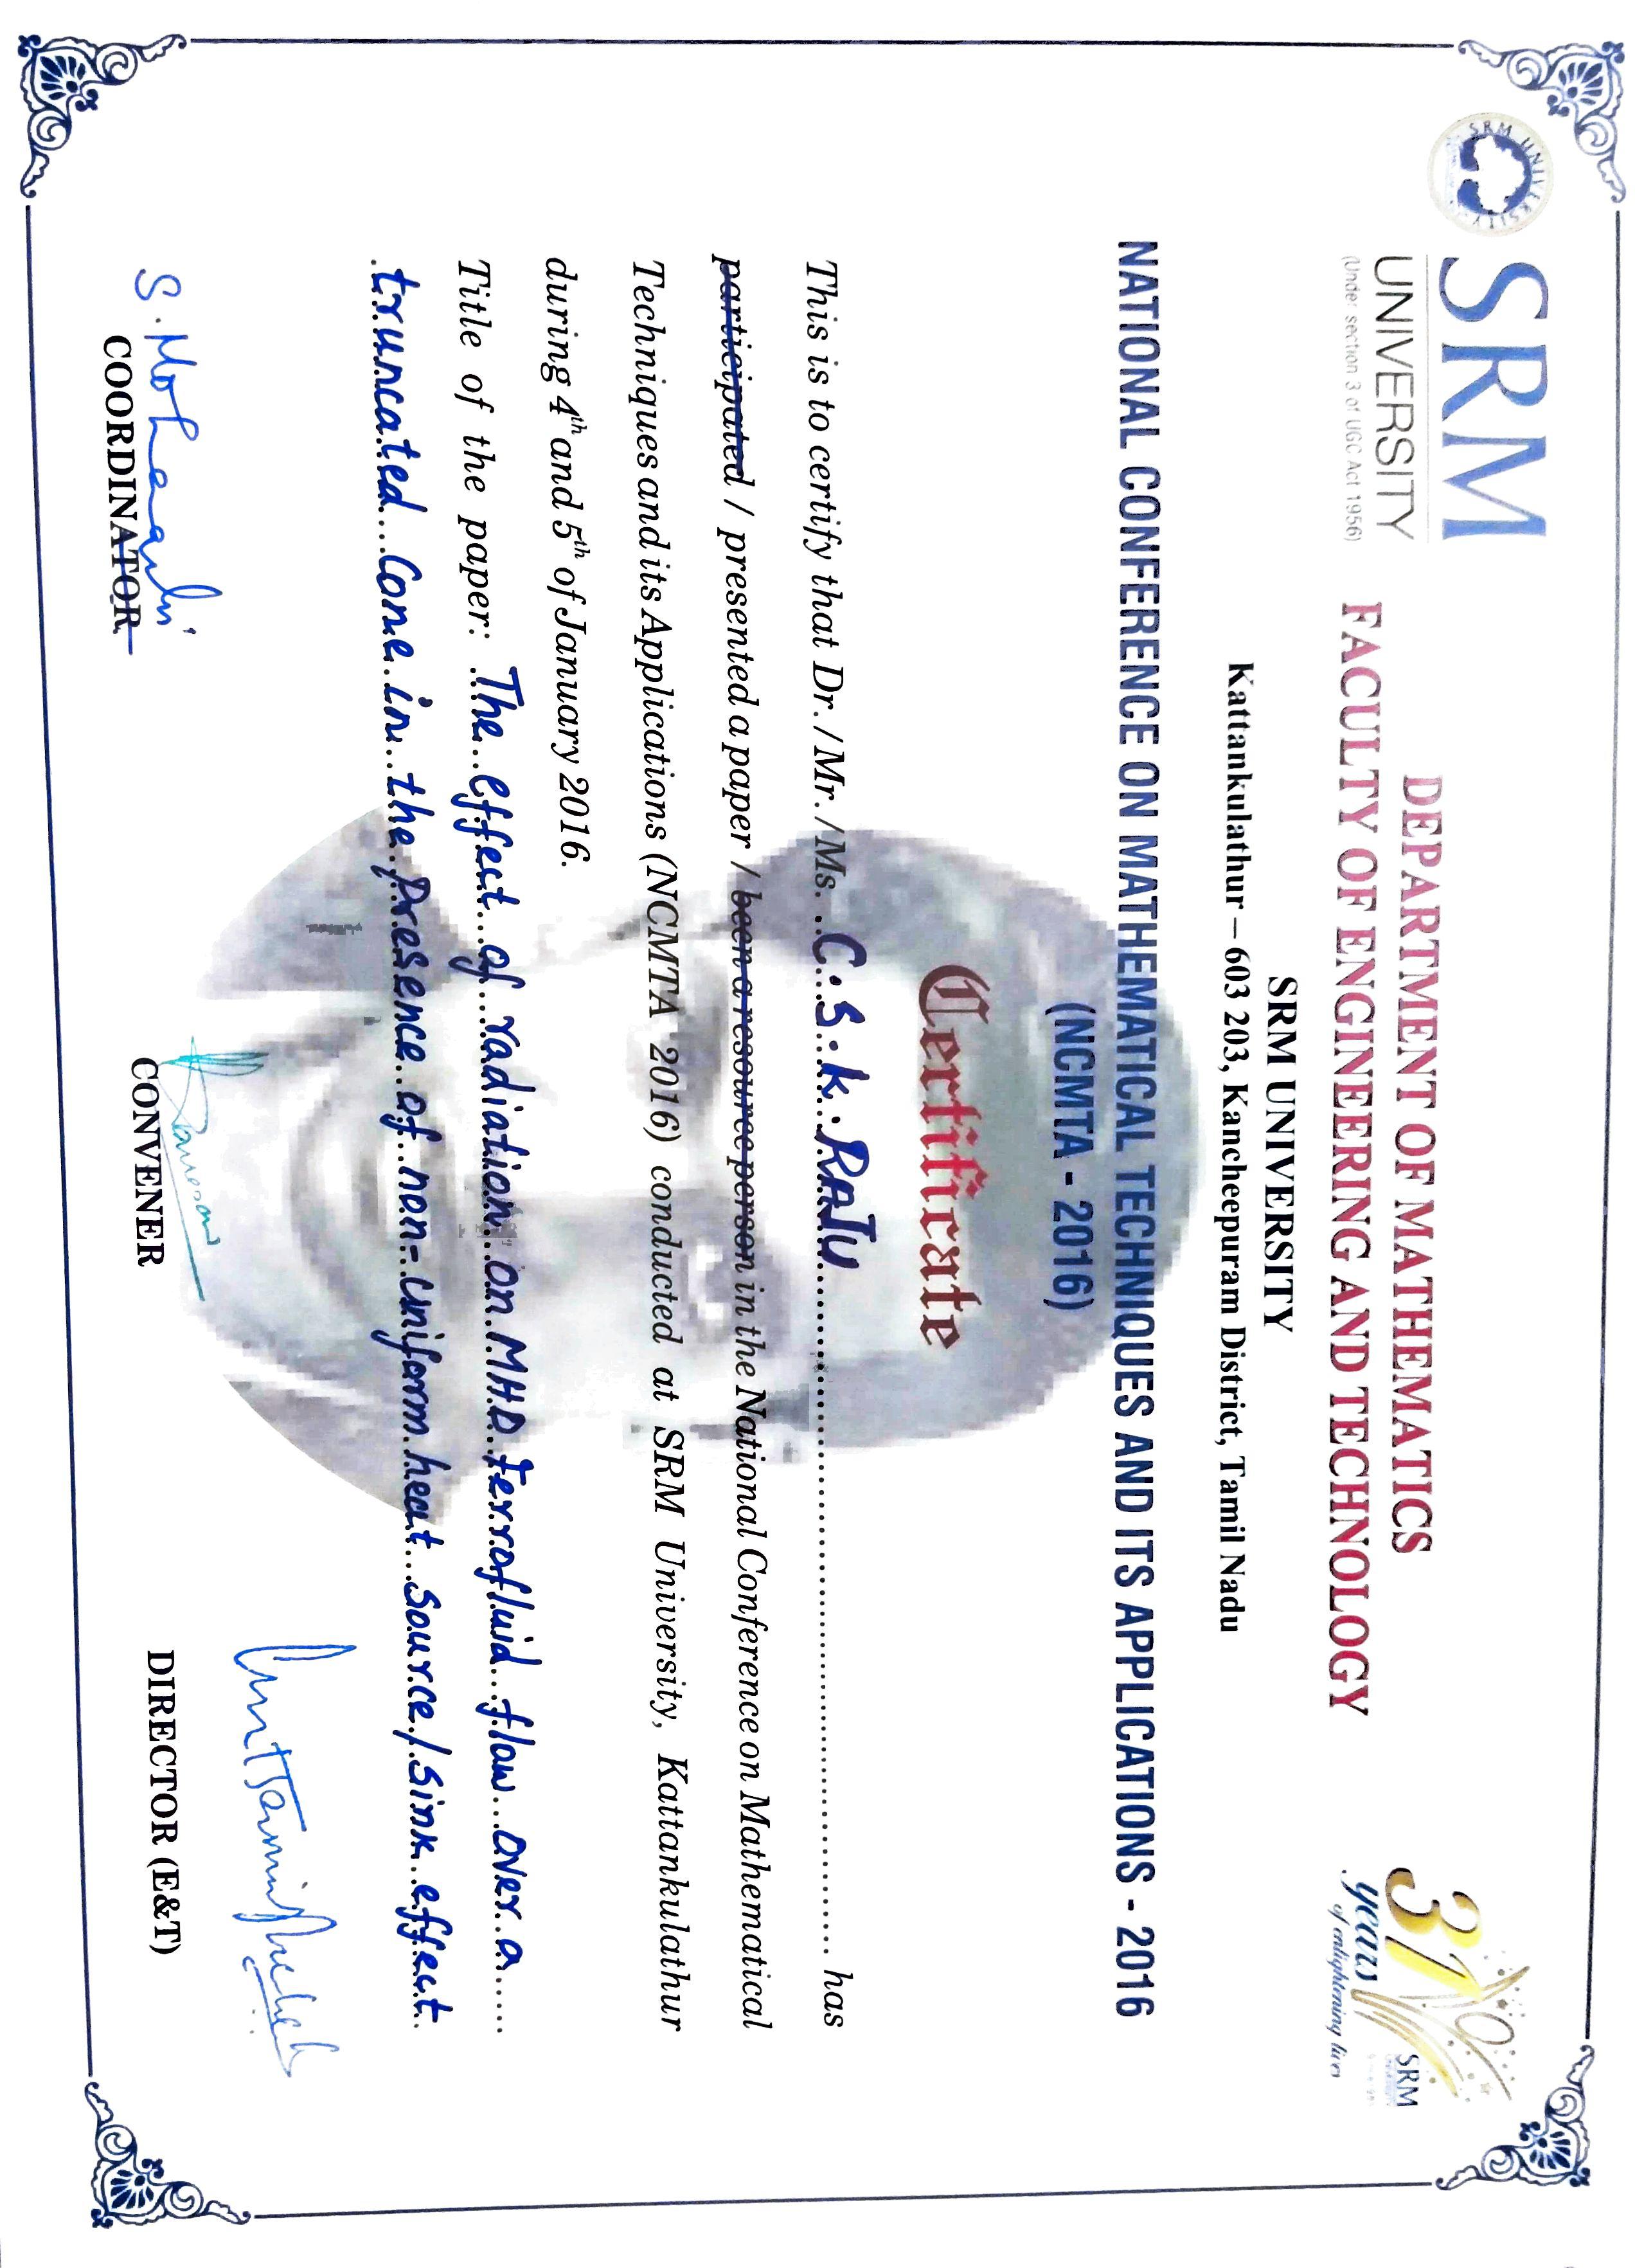 SRM UNIVERSITY
SRM
UNIVERSITY
(Under section 3 of UGC Act 1956)
DEPARTMENT OF MATHEMATICS
FACULTY OF ENGINEERING AND TECHNOLOGY
SRM UNIVERSITY
Kattankulathur – 603 203, Kancheepuram District, Tamil Nadu
31
years
of enlightening lives
SRM
NATIONAL CONFERENCE ON MATHEMATICAL TECHNIQUES AND ITS APPLICATIONS - 2016
(NCMTA - 2016)
Certificate
This is to certify that Dr. / Mr. / Ms. C.S.K. RAJU has
participated / presented a paper / been a resource person in the National Conference on Mathematical
Techniques and its Applications (NCMTA 2016) conducted at SRM University, Kattankulathur
during 4th and 5th of January 2016.
Title of the paper: The effect of radiation on MHD ferrofluid flow over a
truncated Cone in the presence of non-uniform heat source/sink effect
COORDINATOR
CONVENER
DIRECTOR (E&T)